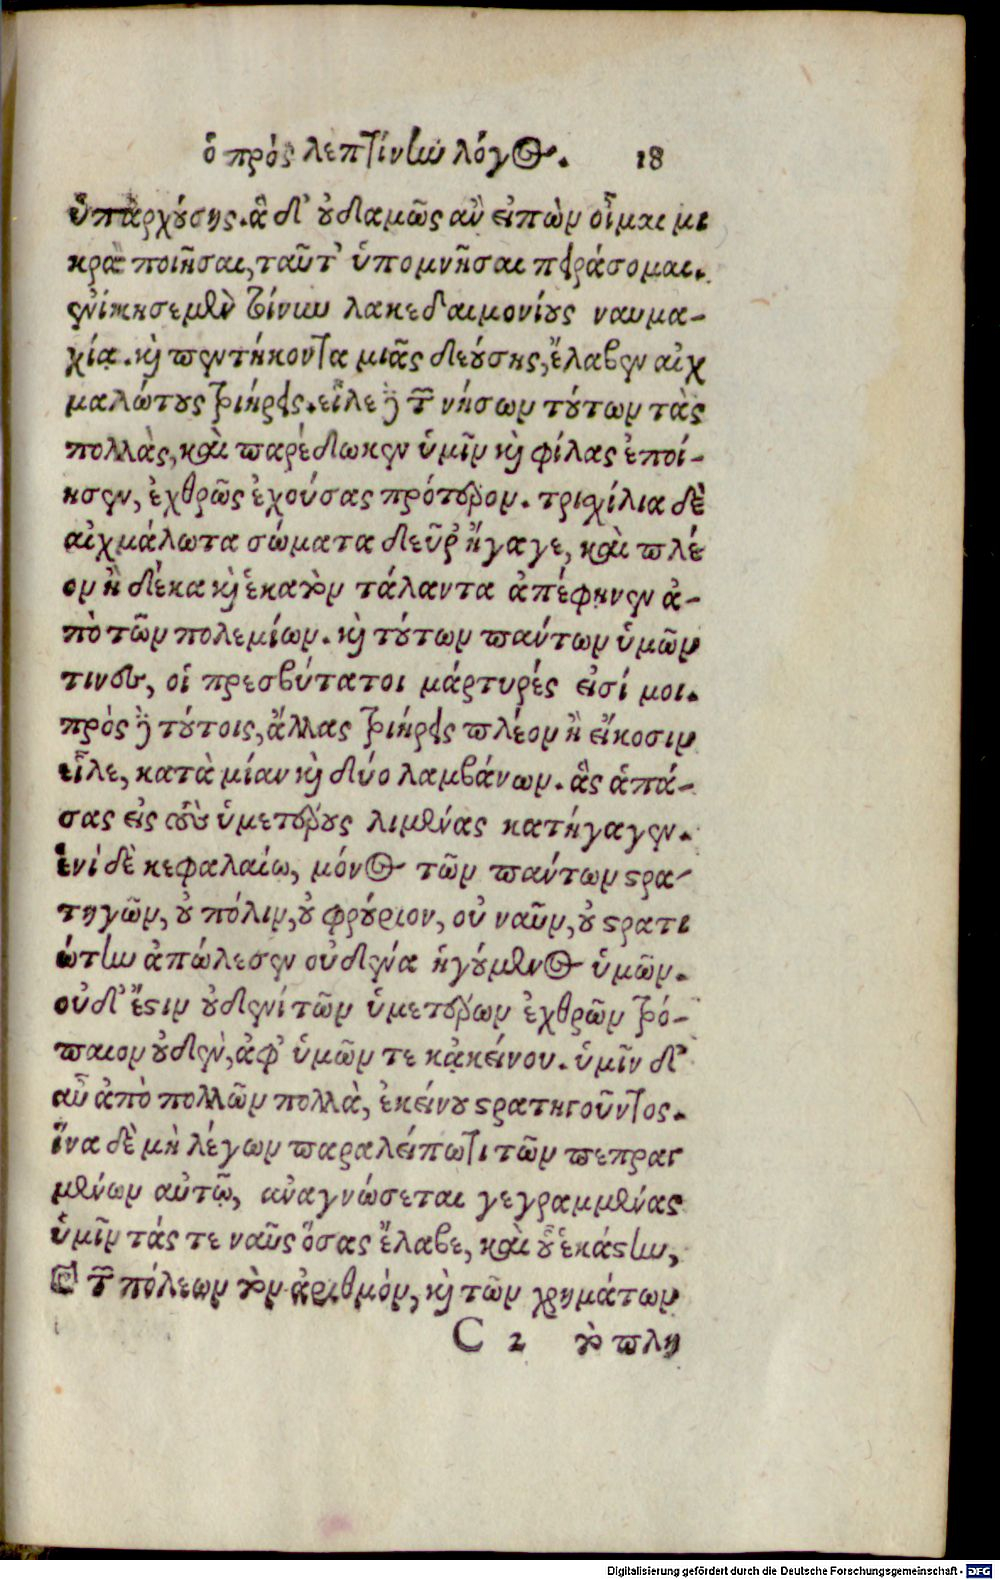 ὁ πρὸς λεπτίνην λόγος. 18
ὑπαρχούσης. ἃ δ' οὐδαμῶς ἂν εἰπὼν οἶμαι μι
κρὰ ποιῆσαι, ταῦτ' ὑπομνῆσαι πειράσομαι.
ἐνίκησε μὲν τοίνυν λακεδαιμονίους ναυμα-
χίᾳ. καὶ πεντήκοντα μιᾶς δεούσης, ἔλαβεν αἰχ
μαλώτους τριήρεις. εἷλε δὲ τῶν νήσων τούτων τὰς
πολλὰς, καὶ παρέδωκεν ὑμῖν καὶ φίλας ἐποί-
ησεν, ἐχθρῶς ἐχούσας πρότερον. τριχίλια δὲ
αἰχμάλωτα σώματα δεῦρ' ἤγαγε, καὶ πλέ
ον ἢ δέκα καὶ ἑκατὸν τάλαντα ἀπέφηνεν ἀ-
πὸ τῶν πολεμίων. καὶ τούτων πάντων ὑμῶν
τινες, οἱ πρεσβύτατοι μάρτυρές εἰσί μοι.
πρὸς δὲ τούτοις, ἄλλας τριήρεις πλέον ἢ εἴκοσιν
εἷλε, κατὰ μίαν καὶ δύο λαμβάνων. ἃς ἁπά-
σας εἰς τοὺς ὑμετέρους λιμένας κατήγαγεν.
ἑνὶ δὲ κεφαλαίῳ, μόνος τῶν πάντων στρα
τηγῶν, οὐ πόλιν, οὐ φρούριον, οὐ ναῦν, οὐ στρατι
ώτην ἀπώλεσεν οὐδένα ἡγούμενος ὑμῶν.
οὐδ' ἔστιν οὐδενὶ τῶν ὑμετέρων ἐχθρῶν τρό-
παιον οὐδὲν, ἀφ' ὑμῶν τε κᾀκείνου. ὑμῖν δ'
αὖ ἀπὸ πολλῶν πολλὰ, ἐκείνου στρατηγοῦντος.
ἵνα δὲ μὴ λέγων παραλείπω τι τῶν πεπραγ
μένων αὐτῷ, ἀναγνώσεται γεγραμμένας
ὑμῖν τάς τε ναῦς ὅσας ἔλαβε, καὶ οὗ ἑκάστην,
καὶ τῶν πόλεων τὸν ἀριθμὸν, καὶ τῶν χρημάτων
C 2 τὸ πλῆ
Digitalisierung gefördert durch die Deutsche Forschungsgemeinschaft - DFG